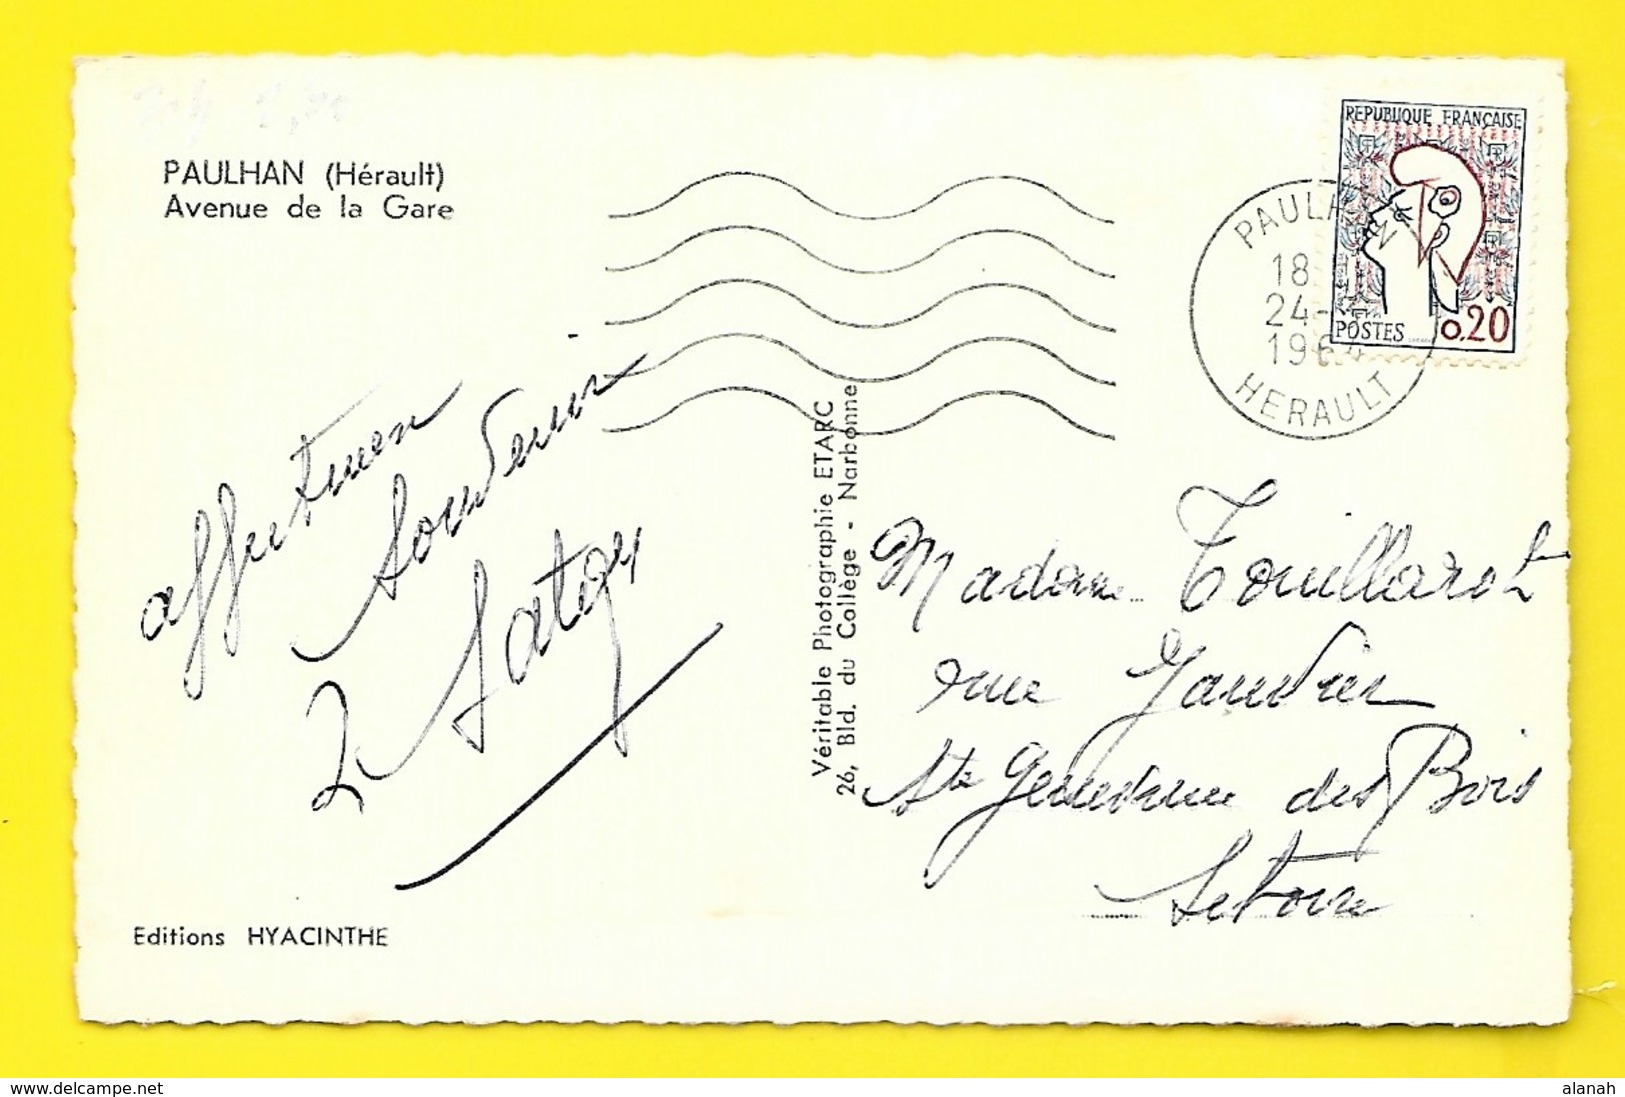 PAULHAN (Hérault)
Avenue de la Gare
REPUBLIQUE FRANÇAISE
POSTES 0.20
PAULHAN
18
24-
1964
HERAULT
Souvenir
Véritable Photographie ETARC
26, Bld. du Collège - Narbonne
Madame Touillarot
rue
Ste Genevieve des Bois
Editions HYACINTHE
delcampe.net
alanah